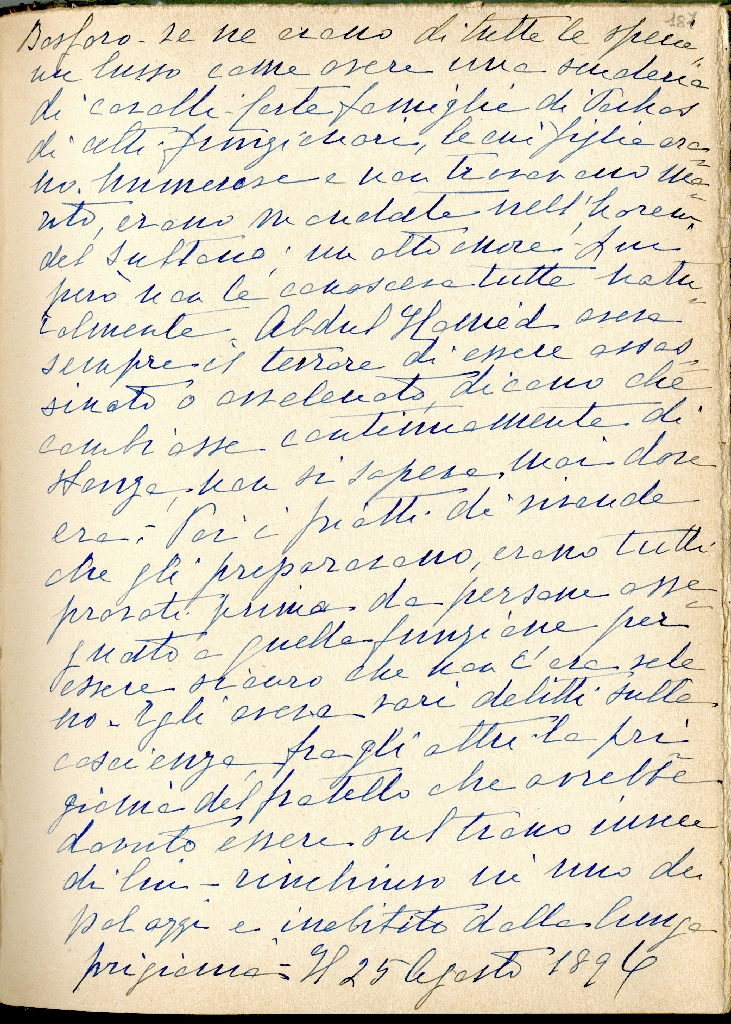 187
Bosforo - se ne erano di tutte le specie
un lusso come avere una scuderia
di cavalli - forte famiglie di Pachas
di alti funzionari, le cui figlie era=
no numerose e non trovavano ma=
rito, erano mandate nell'harem
del Sultano; un alto onore - Lui
però non le conosceva tutte natu=
ralmente Abdul Hamid aveva
sempre il terrore di essere assas=
sinato o avvelenato, dicono che
cambiasse continuamente di
stanza, non si sapeva mai dove
era; Poi i piatti di vivande
che gli preparavano, erano tutti
provati prima da persone asse=
gnato a quella funzione per
essere sicuro che non c'era vele
no - Egli aveva vari delitti sulla
coscienza, fra gli altri la pri
gionia del fratello che avrebbe
dovuto essere sul trono invece
di lui - rinchiuso in uno dei
palazzi e inebitito dalla lunga
prigionia = Il 25 Agosto 1896